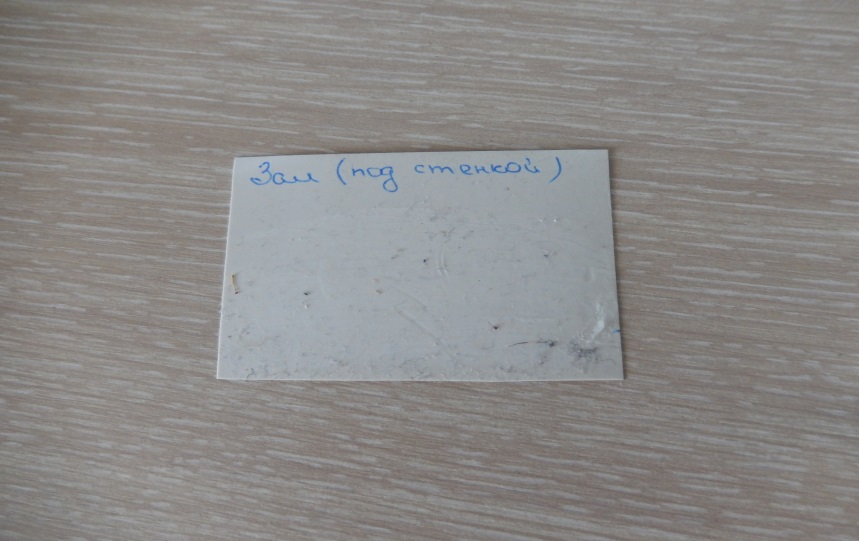 Зал (под стенкой)